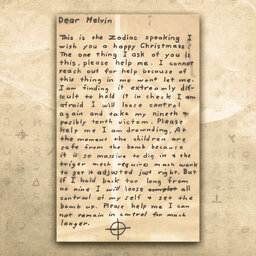 Dear Melvin
This is the Zodiac speaking I
wish you a happy Christmass.
The one thing I ask of you is
this, please help me. I cannot
reach out for help because of
this thing in me wont let me.
I am finding it extreamly dif-
icult to hold it in check I am
afraid I will loose control
again and take my nineth &
posibly tenth victom. Please
help me I am drownding, At
the moment the children are
safe from the bomb because
it is so massive to dig in & the
triger mech requires much work
to get it adjusted just right. But
if I hold back too long from
no nine I will loose all
control of my self & set the
bomb up. Please help me I can
not remain in control for much
longer.